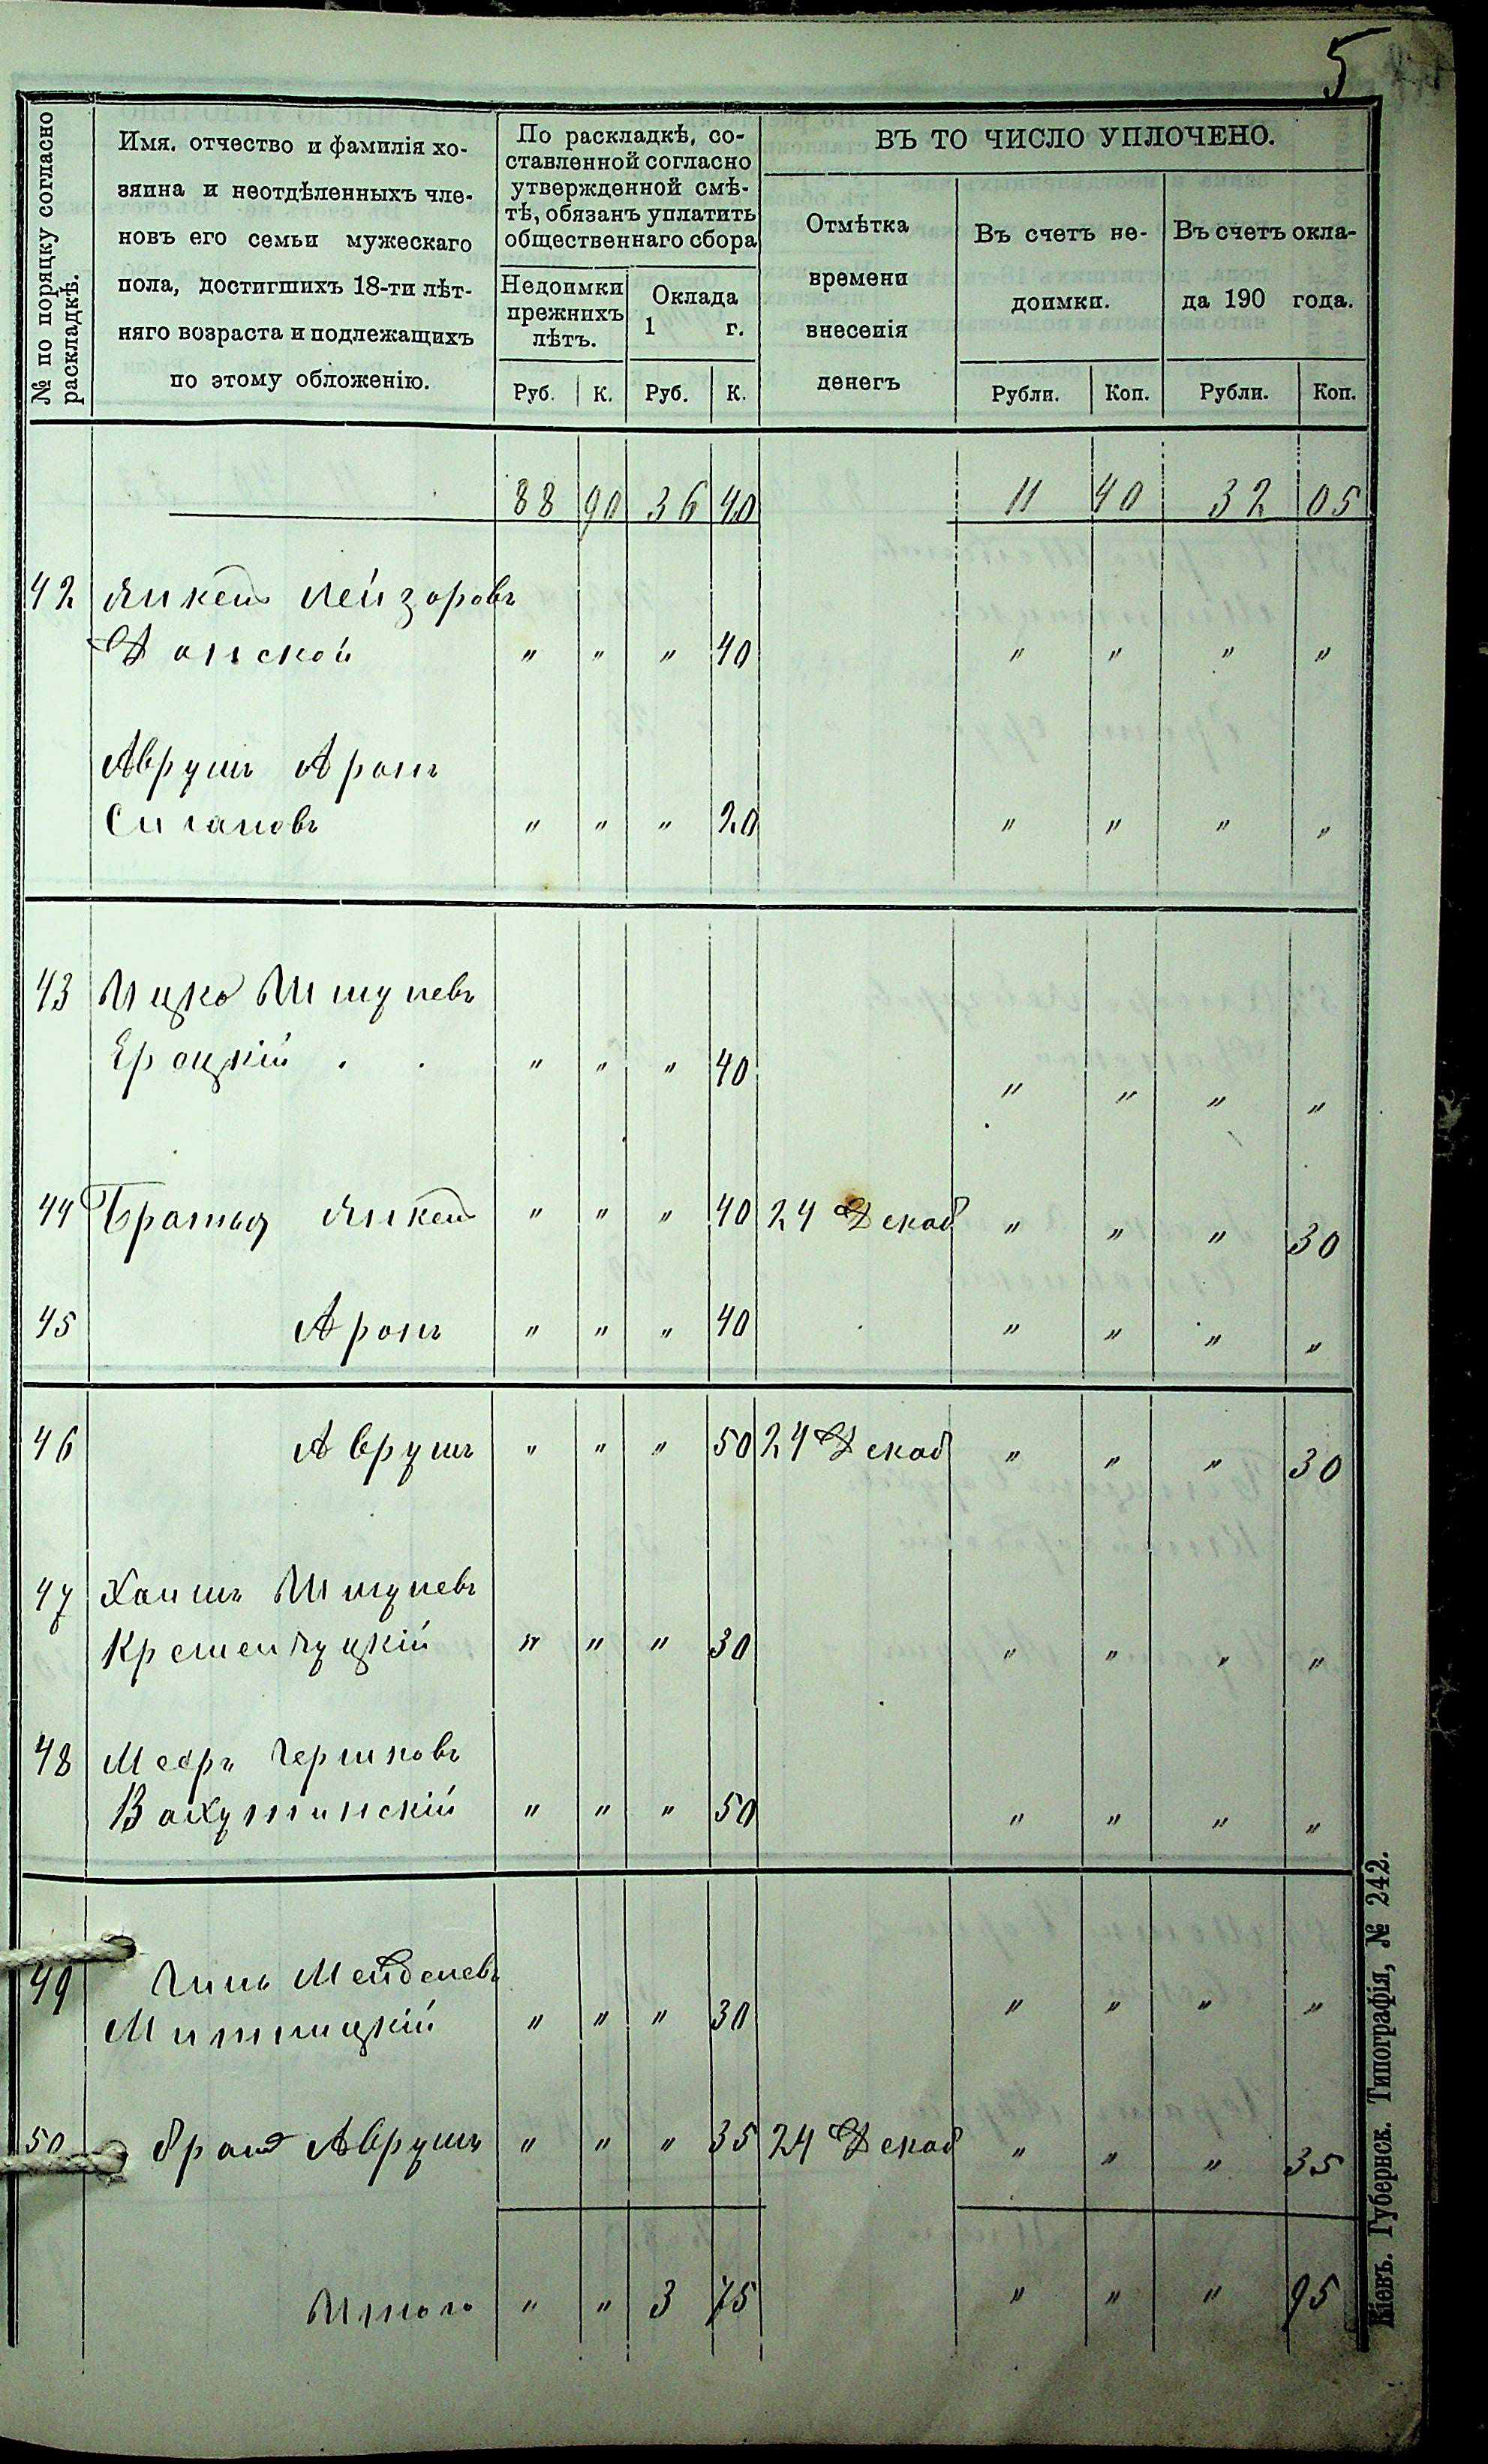 5
№ по порядку согласно раскладкѣ.
Имя, отчество и фамилія хо-
зяина и неотдѣленныхъ чле-
новъ его семьи мужескаго
пола, достигшихъ 18-ти лѣт-
няго возраста и подлежащихъ
по этому обложенію.
По раскладкѣ, со-
ставленной согласно
утвержденной смѣ-
тѣ, обязанъ уплатить
общественнаго сбора
Недоимки
прежнихъ
лѣтъ.
Оклада
1 г.
Руб. К. Руб. К.
ВЪ ТО ЧИСЛО УПЛОЧЕНО.
Отмѣтка
времени
внесенія
денегъ
Въ счетъ не-
доимки.
Рубли. Коп.
Въ счетъ окла-
да 190 года.
Рубли. Коп.
88 90 36 40 11 40 32 05
42 Янкель Лейзоровъ
Донской " " " 40 " " " "
Аврумъ Аронъ
" " " 20 " " " "
43 Ицко Шмулевъ
" " " 40 " " " "
44 Братья Янкель " " " 40 24 Декаб " " " 30
45 Аронъ " " " 40 " " " "
46 Аврумъ " " " 50 24 Декаб " " " 30
47 Хаимъ Шмулевъ
Кременчуцкій " " " 30 " " " "
48 Мееръ Гершковъ
" " " 50 " " " "
49
" " " 30 " " " "
50 братъ Аврумъ " " " 35 24 Декаб " " " 35
Итого " " 3 75 " " " 95
Кіевъ. Губернск. Типографія, № 242.